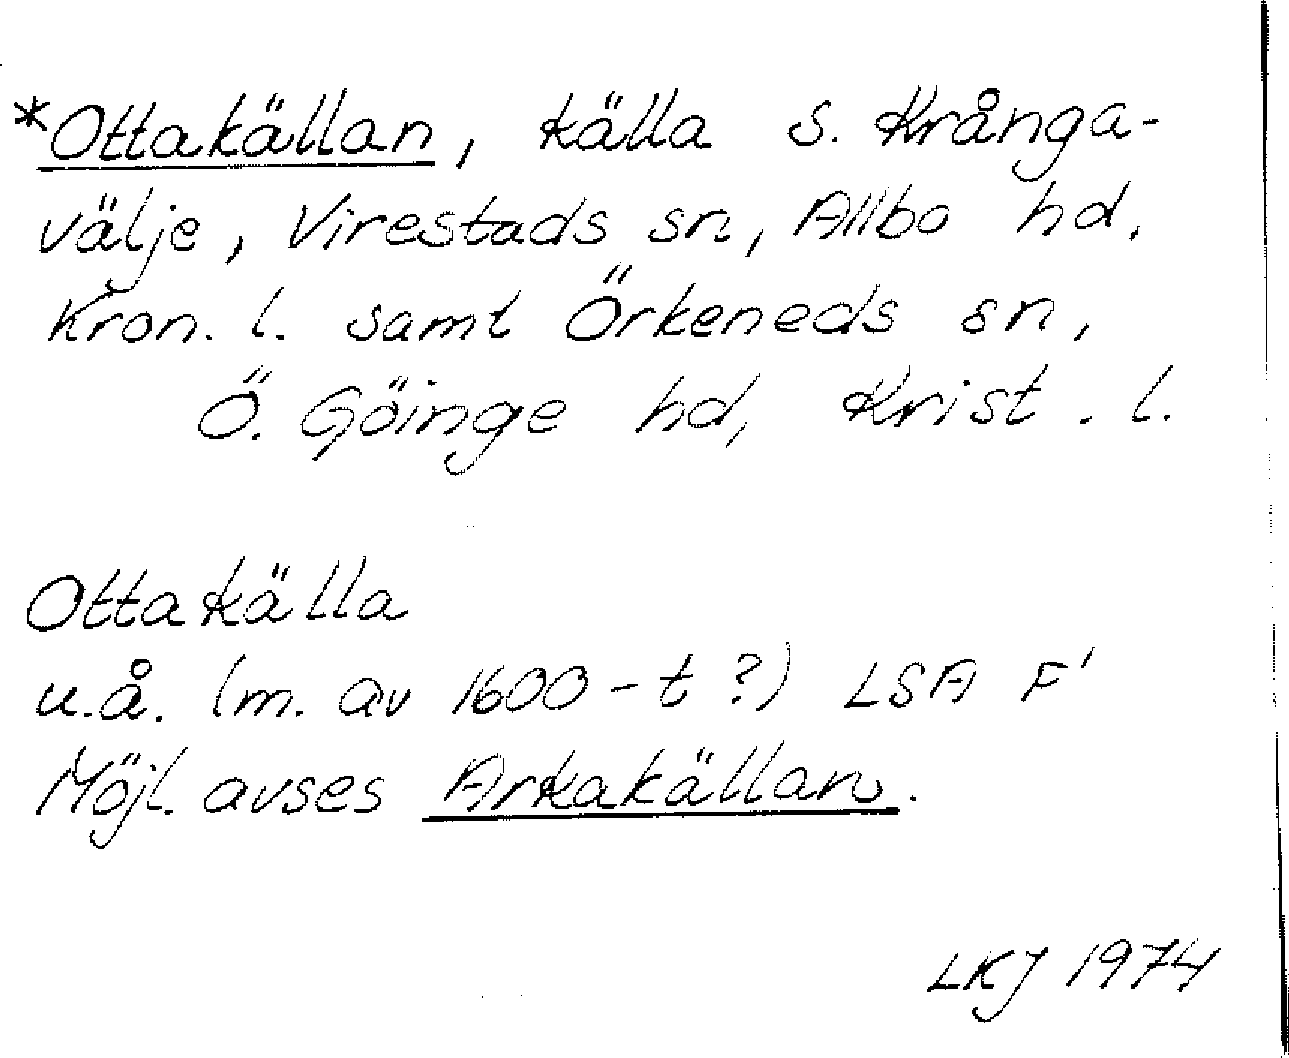 *Ottakällan, källa s. Krånga-
välje, Virestads sn, Allbo hd,
Kron. l. samt Örkeneds sn,
Ö. Göinge hd, Krist. l.
Ottakälla
u.å. (m. av 1600-t?) LSA F'
Möjl. avses Arkakällan.
LKJ 1974